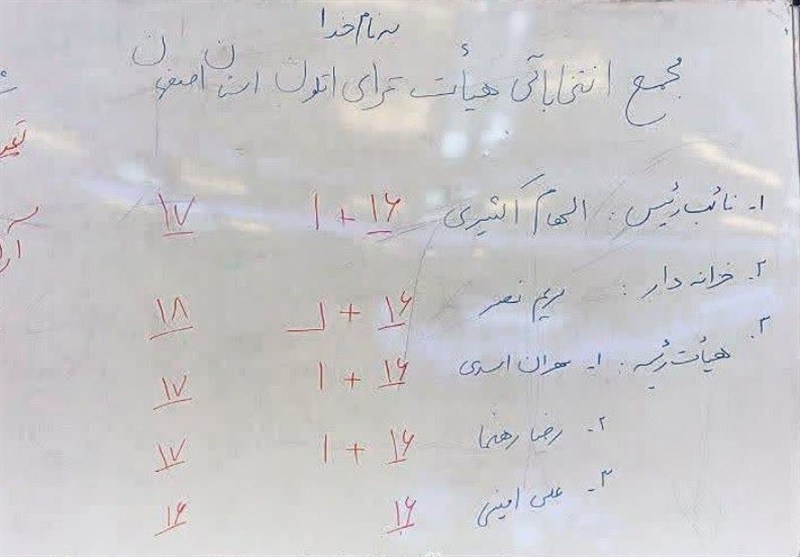 به نام خدا
مجمع انتخاباتی هیأت ترای اتلون استان اصفهان
۱- نائب رئیس : الهام کثیری ۱۶ + ۱ ۱۷
۲- خزانه دار : مریم نصر ۱۶ + ۱۸
۳- هیأت رئیسه : ۱- مهران اسدی ۱۶ + ۱ ۱۷
۲- رضا رهنما ۱۶ + ۱ ۱۷
۳- علی امینی ۱۶ ۱۶